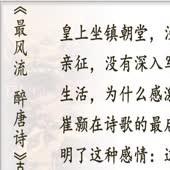 《最风流 醉唐诗》
皇上坐镇朝堂，
亲征，没有深入
生活，为什么感
崔颢在诗歌的最
明了这种感情：